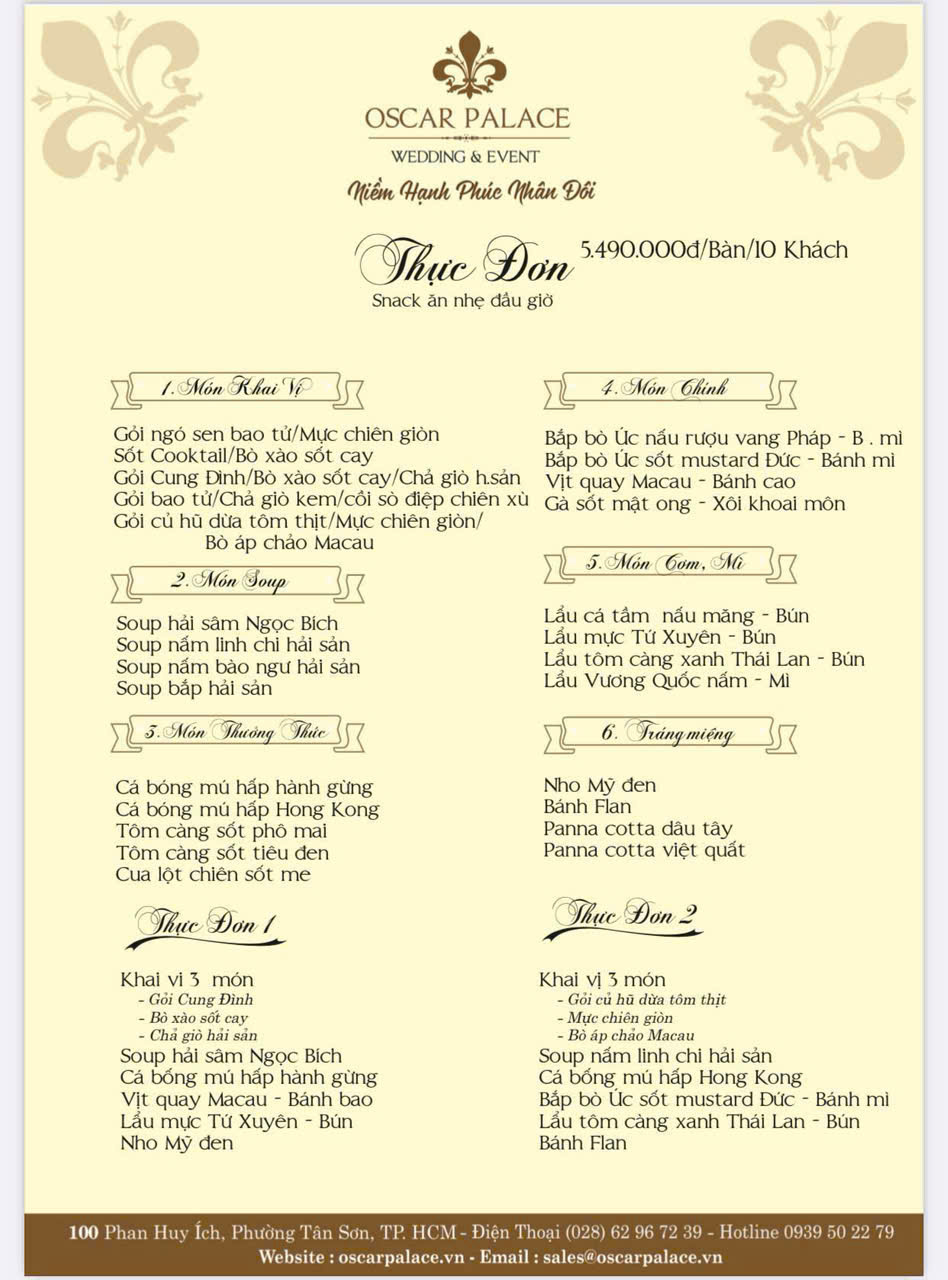 OSCAR PALACE
WEDDING & EVENT
Niềm Hạnh Phúc Nhân Đôi
Thực Đơn 5.490.000đ/Bàn/10 Khách
Snack ăn nhẹ đầu giờ
1. Món Khai Vị
Gỏi ngó sen bao tử/Mực chiên giòn
Sốt Cooktail/Bò xào sốt cay
Gỏi Cung Đình/Bò xào sốt cay/Chả giò h.sản
Gỏi bao tử/Chả giò kem/cồi sò điệp chiên xù
Gỏi củ hũ dừa tôm thịt/Mực chiên giòn/
Bò áp chảo Macau
2. Món Soup
Soup hải sâm Ngọc Bich
Soup nấm linh chi hải sản
Soup nấm bào ngư hải sản
Soup bắp hải sản
3. Món Thưởng Thức
Cá bóng mú hấp hành gừng
Cá bóng mú hấp Hong Kong
Tôm càng sốt phô mai
Tôm càng sốt tiêu đen
Cua lột chiên sốt me
4. Món Chính
Bắp bò Úc nấu rượu vang Pháp - B . mì
Bắp bò Úc sốt mustard Đức - Bánh mì
Vịt quay Macau - Bánh cao
Gà sốt mật ong - Xôi khoai môn
5. Món Cơm, Mì
Lẩu cá tầm nấu măng - Bún
Lẩu mực Tứ Xuyên - Bún
Lẩu tôm càng xanh Thái Lan - Bún
Lẩu Vương Quốc nấm - Mì
6. Tráng miệng
Nho Mỹ đen
Bánh Flan
Panna cotta dâu tây
Panna cotta việt quất
Thực Đơn 1
Khai vi 3 món
- Gỏi Cung Đình
- Bò xào sốt cay
- Chả giò hải sản
Soup hải sâm Ngọc Bích
Cá bống mú hấp hành gừng
Vịt quay Macau - Bánh bao
Lẩu mực Tứ Xuyên - Bún
Nho Mỹ đen
Thực Đơn 2
Khai vị 3 món
- Gỏi củ hũ dừa tôm thịt
- Mực chiên giòn
- Bò áp chảo Macau
Soup nấm linh chi hải sản
Cá bống mú hấp Hong Kong
Bắp bò Úc sốt mustard Đức - Bánh mì
Lẩu tôm càng xanh Thái Lan - Bún
Bánh Flan
100 Phan Huy Ích, Phường Tân Sơn, TP. HCM - Điện Thoại (028) 62 96 72 39 - Hotline 0939 50 22 79
Website : oscarpalace.vn - Email : sales@oscarpalace.vn